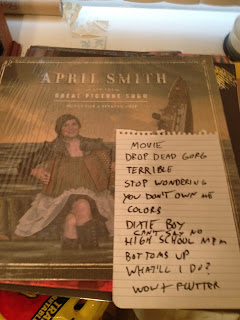 APRIL SMITH
GREAT PICTURE SHOW
SONGS FOR A SINKING SHIP
MOVIE
DROP DEAD GORG
TERRIBLE
STOP WONDERING
YOU DON'T OWN ME
COLORS
DIXIE BOY
CAN'T SAY NO
HIGH SCHOOL MEM
BOTTOMS UP
WHAT'LL I DO?
WOW + FLUTTER